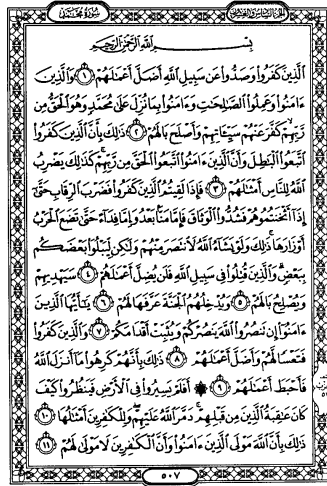 سورة محمد
الجزء السادس والعشرون
بسم الله الرحمن الرحيم
الذين كفروا وصدوا عن سبيل الله أضل أعملهم ١ والذين
ءامنوا وعملوا الصلحت وءامنوا بما نزل على محمد وهو الحق من
ربهم كفر عنهم سيءاتهم وأصلح بالهم ٢ ذلك بأن الذين كفروا
اتبعوا البطل وأن الذين ءامنوا اتبعوا الحق من ربهم كذلك يضرب
الله للناس أمثلهم ٣ فإذا لقيتم الذين كفروا فضرب الرقاب حتى
إذا أثخنتموهم فشدوا الوثاق فإما منا بعد وإما فداء حتى تضع الحرب
أوزارها ذلك ولو يشاء الله لانتصر منهم ولكن ليبلوا بعضكم
ببعض والذين قتلوا في سبيل الله فلن يضل أعملهم ٤ سيهديهم
ويصلح بالهم ٥ ويدخلهم الجنة عرفها لهم ٦ يأيها الذين
ءامنوا إن تنصروا الله ينصركم ويثبت أقدامكم ٧ والذين كفروا
فتعسا لهم وأضل أعملهم ٨ ذلك بأنهم كرهوا ما أنزل الله
فأحبط أعملهم ٩ ۞ أفلم يسيروا في الأرض فينظروا كيف
كان عقبة الذين من قبلهم دمر الله عليهم وللكفرين أمثلها ١٠
ذلك بأن الله مولى الذين ءامنوا وأن الكفرين لا مولى لهم ١١
٥٠٧